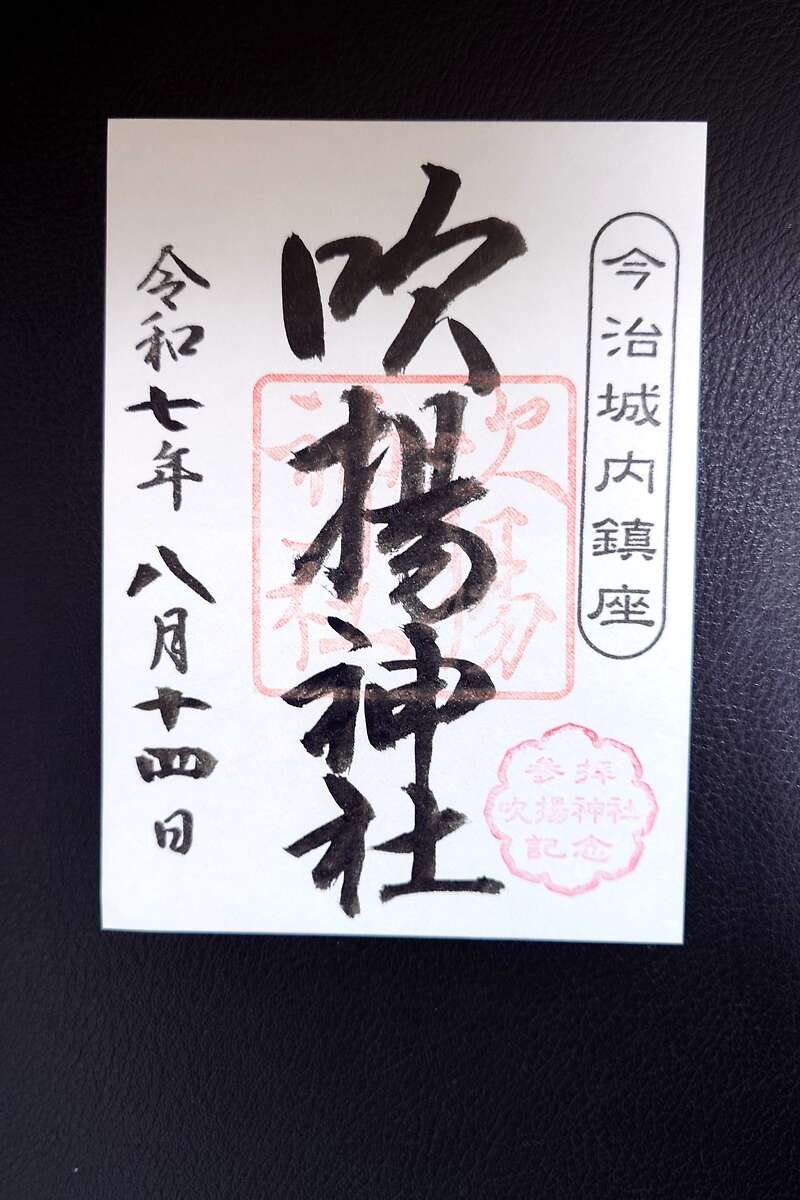 今治城内鎮座
吹揚神社
吹揚
神社
令和七年 八月十四日
参拝
吹揚神社
記念